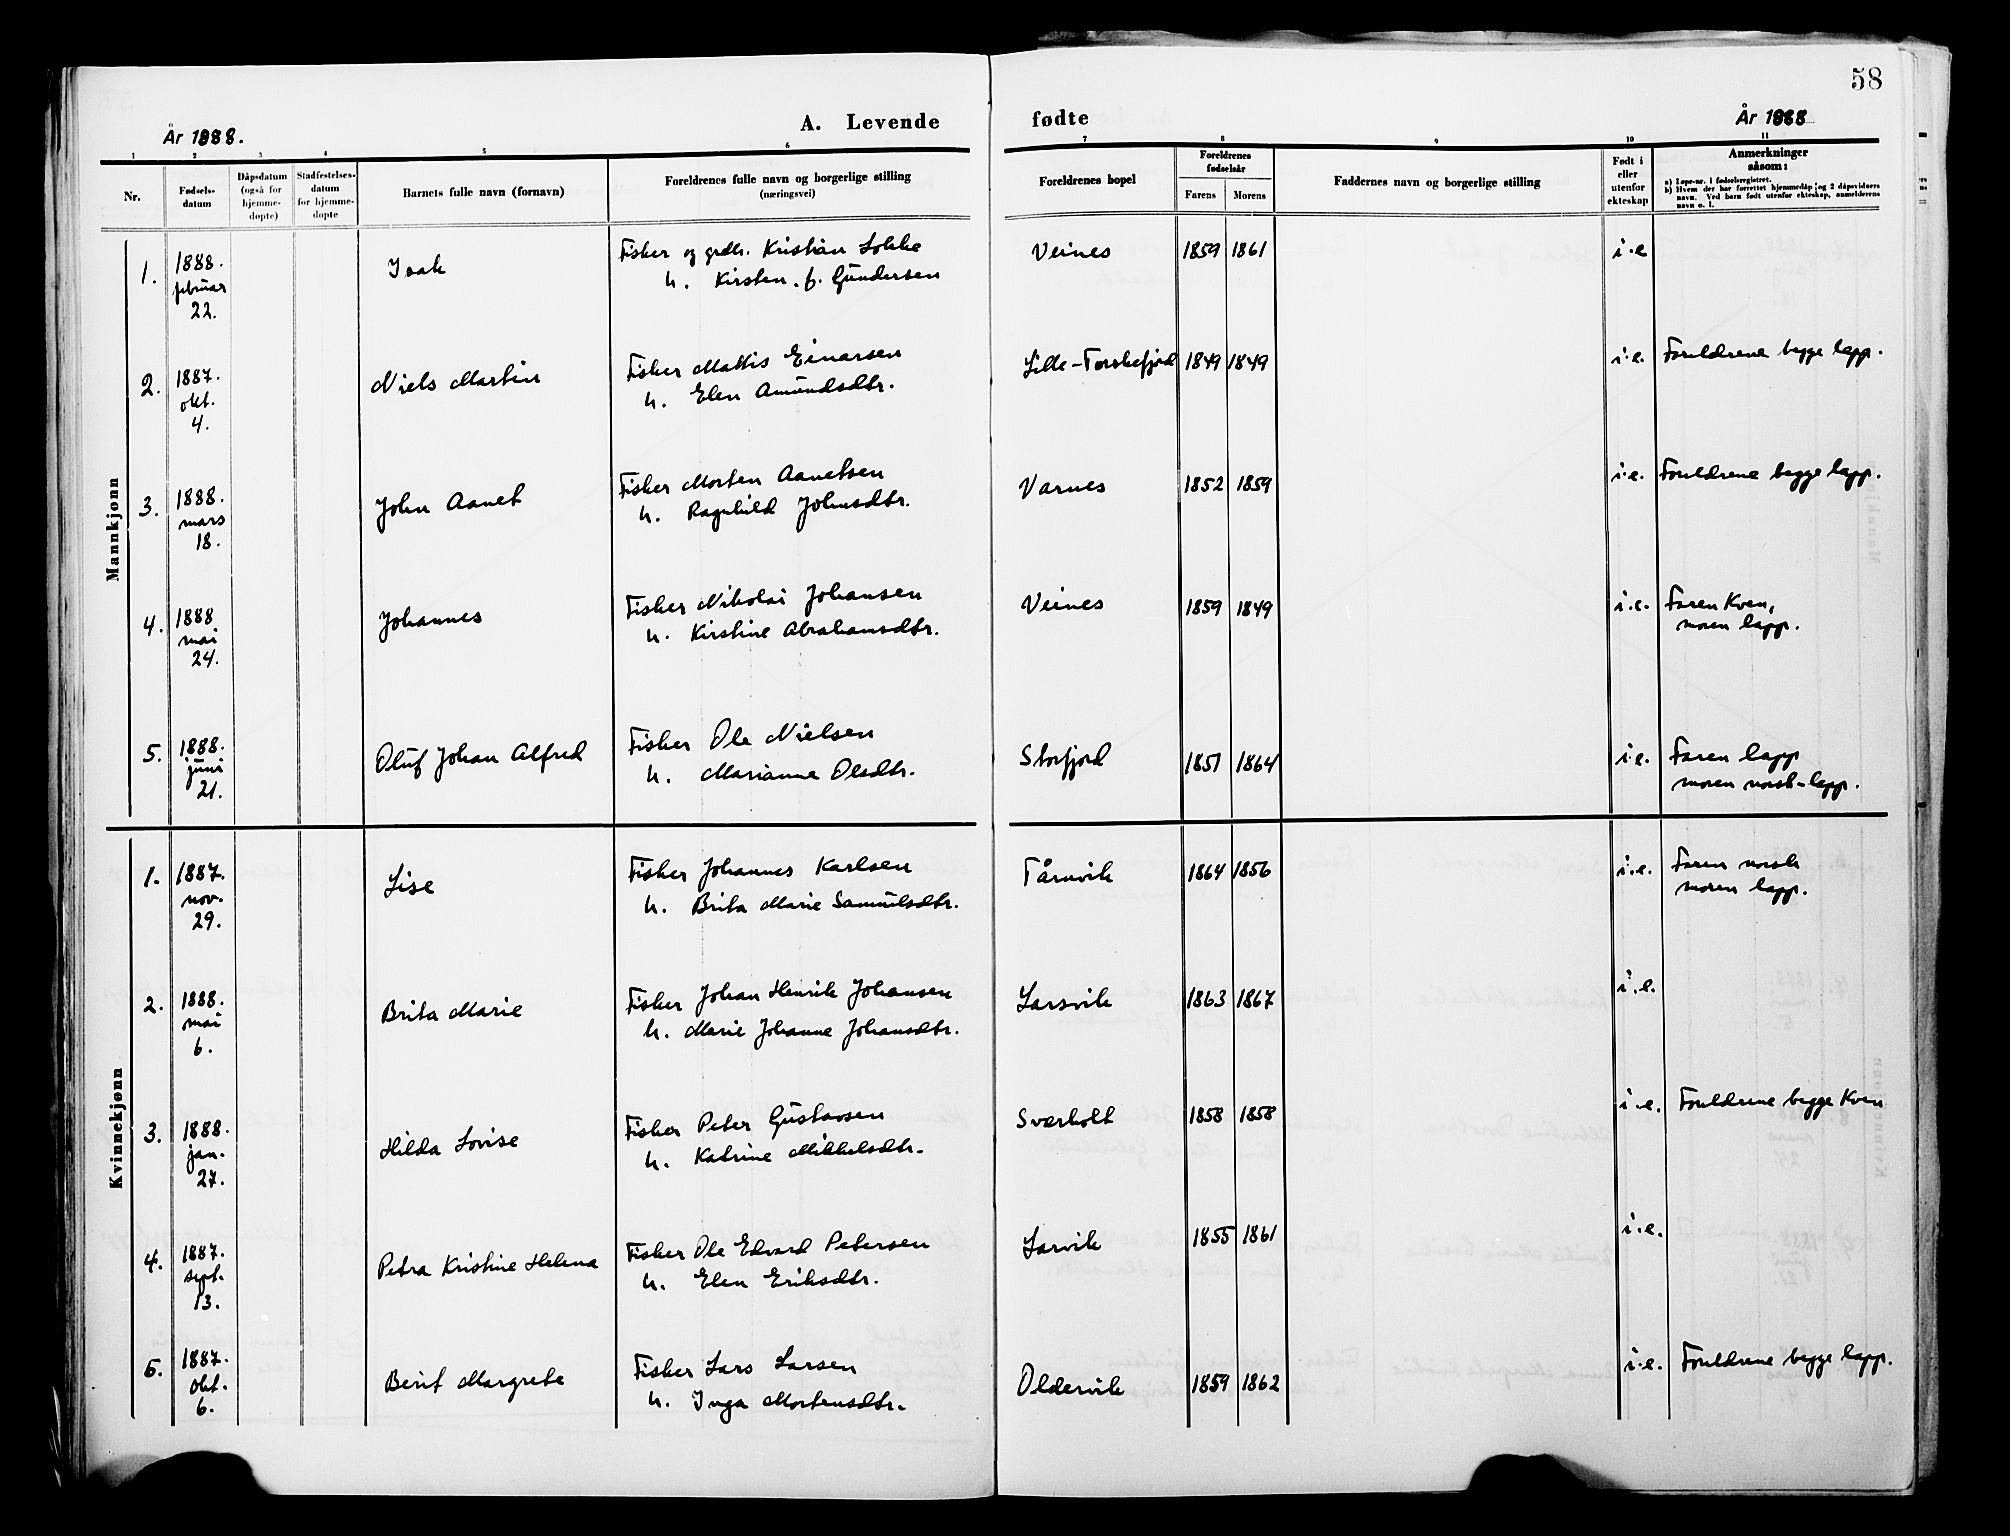 58
År 1888.
A. Levende
fødte
År 1888
1 2 3 4 5 6 7 8 9 10 11
Nr.
Fødsels-
datum
Dåpsdatum
(også for
hjemme-
døpte)
Stadfestelses-
datum
for hjemme-
døpte
Barnets fulle navn (fornavn)
Foreldrenes fulle navn og borgerlige stilling
(næringsvei)
Foreldrenes bopel
Foreldrenes
fødselsår
Farens
Morens
Faddernes navn og borgerlige stilling
Født i
eller
utenfor
ekteskap
Anmerkninger
såsom:
a) Løpe-nr. i fødselsregistret.
b) Hvem der har forrettet hjemmedåp og 2 dåpsvidners
navn. Ved barn født utenfor ekteskap, anmelderens
navn o. l.
Mannkjønn
1.
1888.
februar
22.
Isak
Fisker og grdbr. Kristian Lokke
h. Kirsten f. Gundersen
Veines
1859 1861
i.e
2.
1887.
okt.
4.
Niels Martin
Fisker Mattis Einarsen
h. Elen Amundsdtr.
Lille-Torskefjord
1849 1849
i.e.
Foreldrene begge lapp.
3.
1888.
mars
18.
John Aanet
Fisker Morten Aanetsen
h. Ragnhild Johnsdtr.
Varnes
1852 1859
i.e.
Foreldrene begge lapp.
4.
1888
mai
24.
Johannes
Fisker Nikolai Johansen
h. Kirstine Abrahamsdtr.
Veines
1859 1849
i.e.
Faren Kven,
moren lapp.
5.
1888.
juni
21.
Oluf Johan Alfred
Fisker Ole Nielsen
h. Marianne Olsdtr.
Storfjord
1851 1864
i.e.
Faren lapp
moren norsk-lapp.
Kvinnekjønn
1.
1887.
nov.
29.
Lise
Fisker Johannes Karlsen
h. Brita Marie Samuelsdtr.
Tårnvik
1864 1856
i.e.
Faren norsk
moren lapp.
2.
1888.
mai
6.
Brita Marie
Fisker Johan Henrik Johansen
h. Marie Johanne Johansdtr.
Larsvik
1863 1867
i.e.
3.
1888.
jan.
27.
Hilda Lovise
Fisker Peter Gustavsen
h. Katrine Mikkelsdtr.
Sværholt
1858 1858
i.e.
Foreldrene begge Kven
4.
1887.
sept.
13.
Petra Kristine Helena
Fisker Ole Edvard Petersen
h. Elen Eriksdtr.
Larvik
1855 1861
i.e.
5.
1887.
okt.
6.
Berit Margrete
Fisker Lars Larsen
h. Inga Mortensdtr.
Oldervik
1859 1862
i.e.
Foreldrene begge lapp.